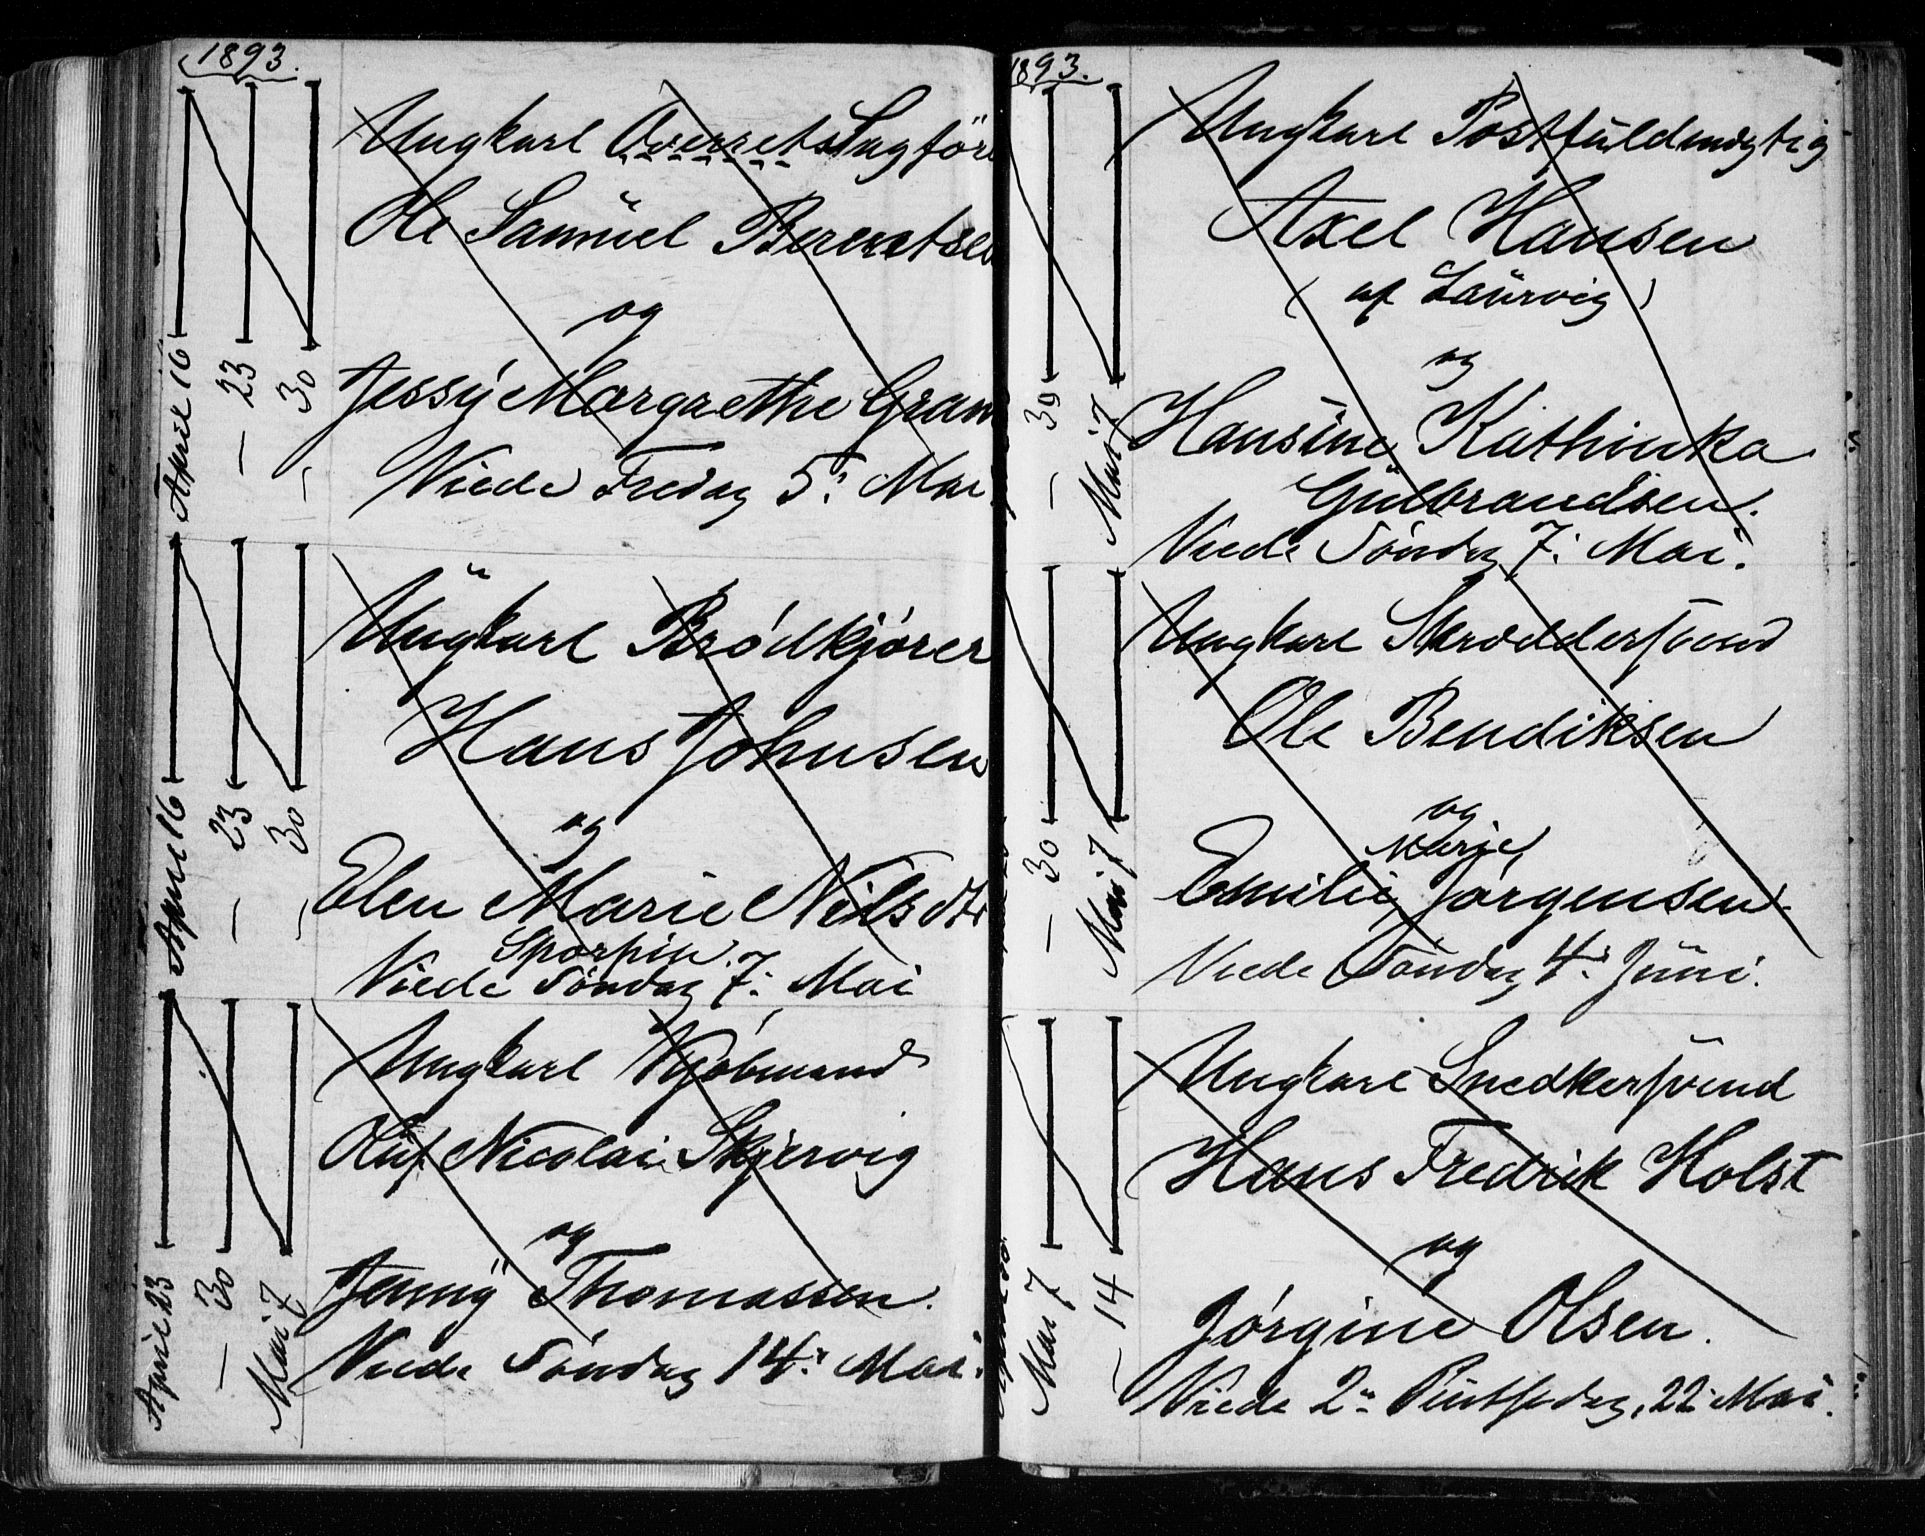 1893.
Ungkarl Overretssagför
Ole Samuel Berentsen
og
Jessy Margrethe Gram
Viede Fredag 5: Mai
April 16
— 23
— 30
Ungkarl Brødkjører
Hans Johnsen
og
Elen Marie Nilsdtr
Viede Søndag 7: Mai
April 16
— 23
— 30
Ungkarl Kjøbmand
Oluf Nicolai Skjervig
og
Jenny Thomassen.
Viede Søndag 14: Mai.
April 23
— 30
Mai 7
1893.
Ungkarl Postfuldmægtig
Axel Hansen
(af Laurvig)
og
Hansine Kathinka
Gulbrandsen.
Viede Søndag 7: Mai.
— 30
Mai 7
Ungkarl Skræddersvend
Ole Bendiksen
og
Marie
Emilie Jørgensen.
Viede Søndag 4: Juni.
— 30
Mai 7
Ungkarl Snedkersvend
Hans Fredrik Holst
og
Jørgine Olsen.
Viede 2n Pintsedag, 22 Mai.
Mai 7
— 14